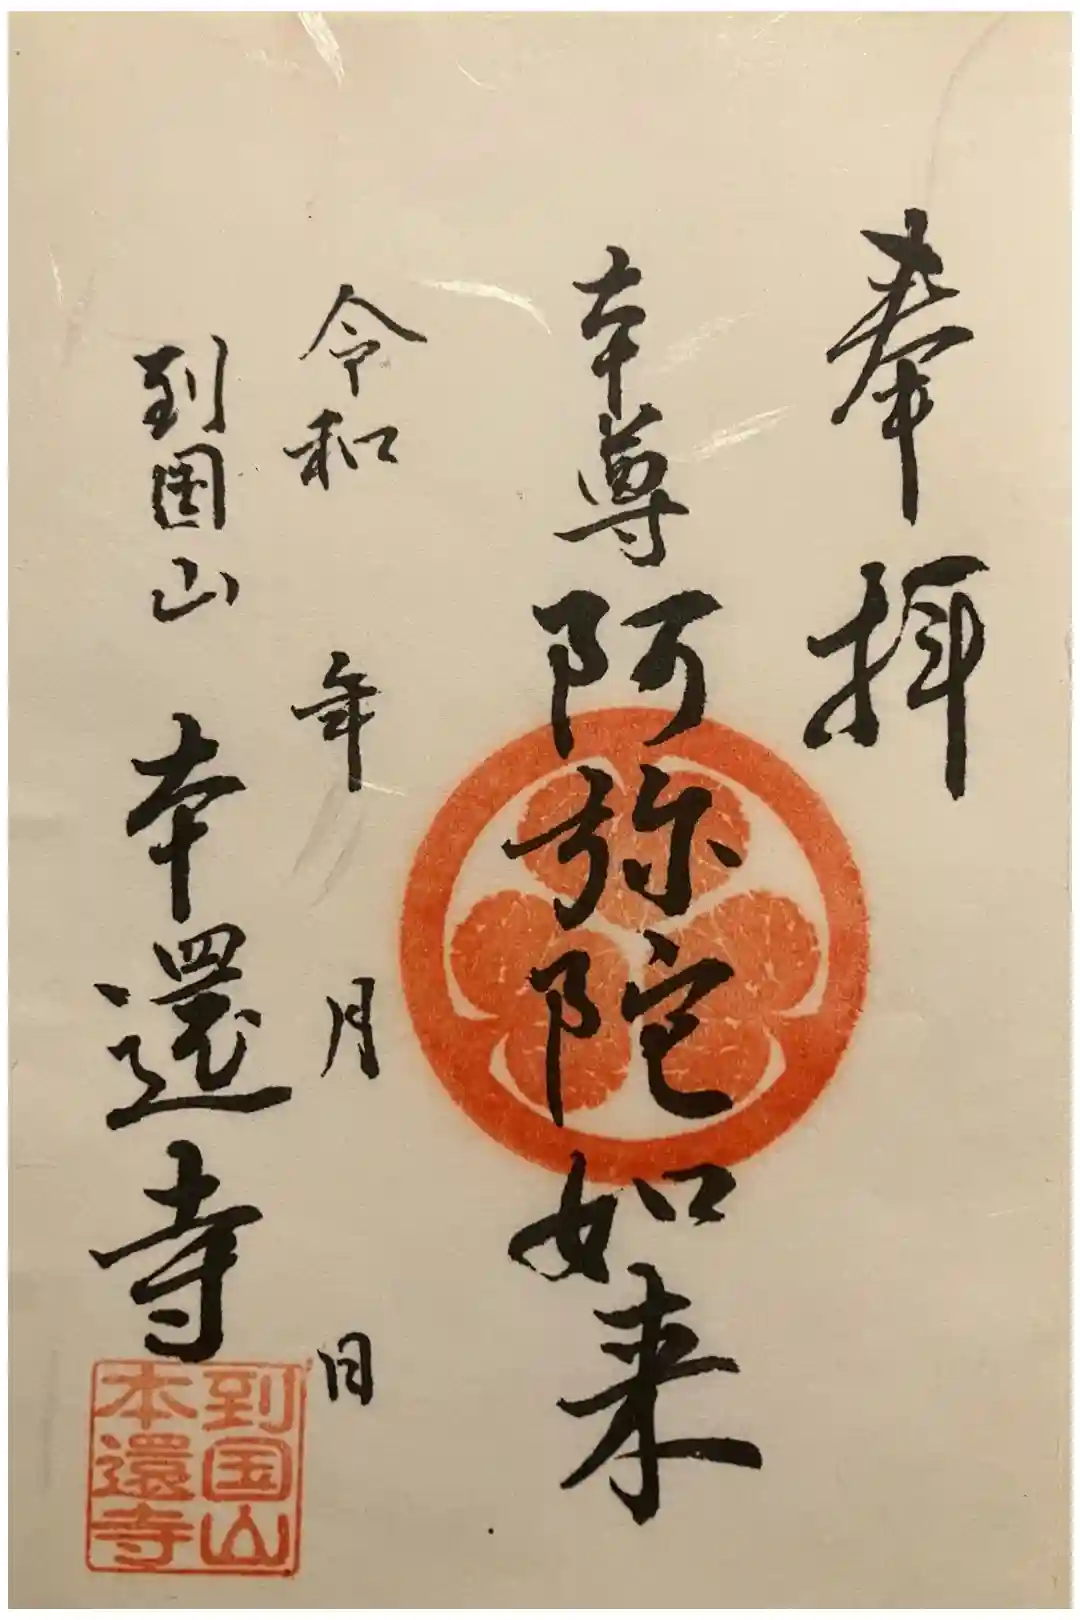 奉拝
本尊阿弥陀如来
令和 年 月 日
到国山 本還寺
到国山
本還寺